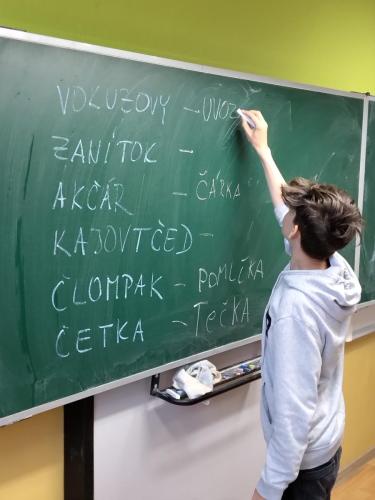 VOKUZOVY – UVOZ
ZANÍTOK –
AKČÁR – ČÁRKA
KAJOVTČED –
ČLOMPAK – POMLČKA
ČETKA – TEČKA